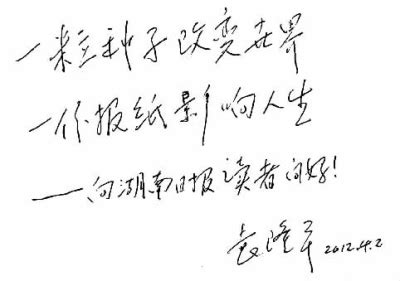 一粒种子改变世界
一份报纸影响人生
——向湖南日报读者问好！
袁隆平 2012.4.2